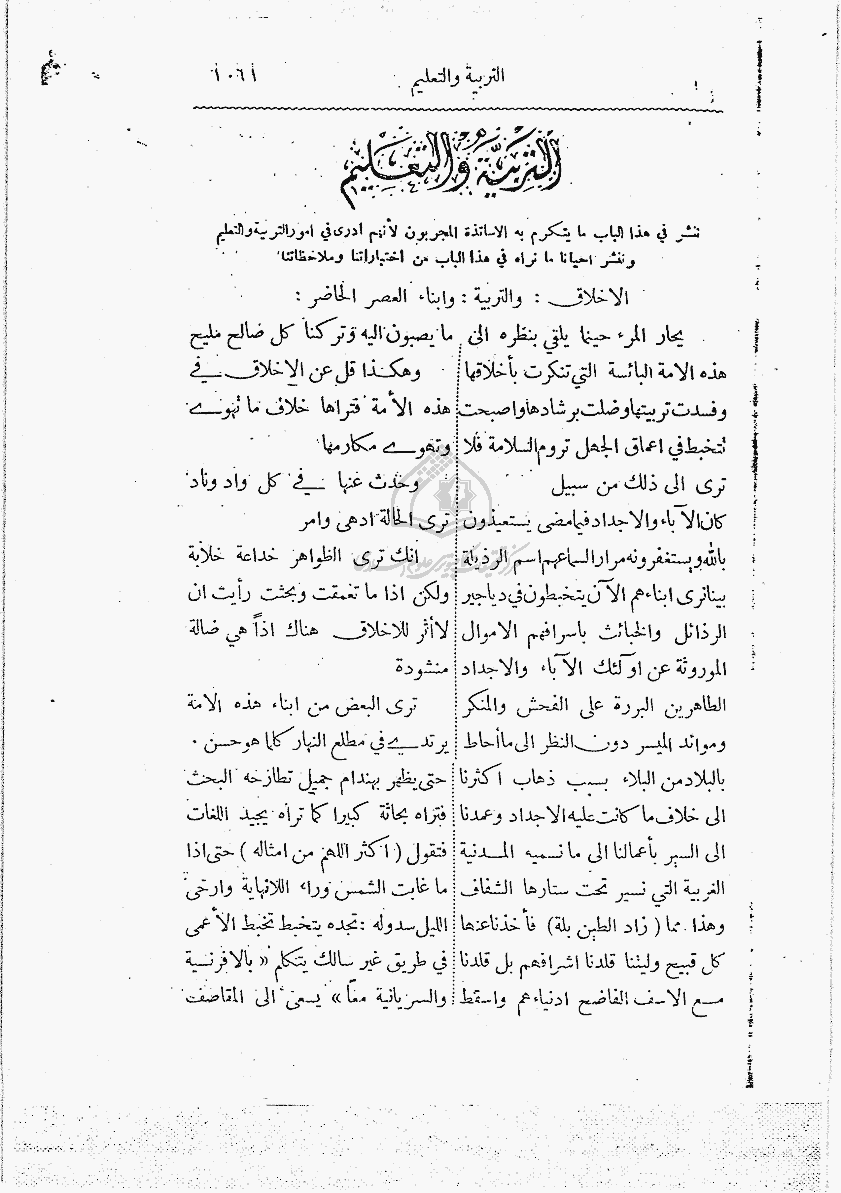 التربية والتعليم
١٠٦١
التربية والتعليم
ننشر في هذا الباب ما يتكرم به الاساتذة المجربون لأنهم ادرى في امور التربية والتعليم
وننشر احيانا ما نراه في هذا الباب من اختباراتنا وملاحظاتنا
الاخلاق : والتربية : وابناء العصر الحاضر :
يحار المرء حينما يلقي بنظره الى
هذه الامة البائسة التي تنكرت بأخلاقها
وفسدت تربيتها وضلت برشادها واصبحت
تتخبط في اعماق الجهل تروم السلامة فلا
ترى الى ذلك من سبيل
كان الآباء والاجداد فيما مضى يستعيذون
بالله ويستغفرونه مرارا لسماعهم اسم الرذيلة
بينا ترى ابناءهم الآن يتخبطون في دياجير
الرذائل والخبائث باسرافهم الاموال
الموروثة عن اولئك الآباء والاجداد
الطاهرين البررة على الفحش والمنكر
وموائد الميسر دون النظر الى ما أحاط
بالبلاد من البلاء بسبب ذهاب اكثرنا
الى خلاف ما كانت عليه الاجداد وعمدنا
الى السير بأعمالنا الى ما نسميه المدنية
الغربية التي نسير تحت ستارها الشفاف
وهذا مما ( زاد الطين بلة ) فأخذنا عنها
كل قبيح وليتنا قلدنا اشرافهم بل قلدنا
مع الاسف الفاضح ادنياءهم واسقط
ما يصبون اليه وتركنا كل صالح مليح
وهكذا قل عن الاخلاق في
هذه الأمة فتراها خلاف ما نهوى
وتهوى مكارمها
وحدث عنها في كل واد وناد
ترى الحالة ادهى وامر
انك ترى الظواهر خداعة خلابة
ولكن اذا ما تعمقت وبحثت رأيت ان
لا أثر للاخلاق هناك اذاً هي ضالة
منشودة
ترى البعض من ابناء هذه الامة
يرتدي في مطلع النهار كلما هو حسن .
حتى يظهر بهندام جميل تطارحه البحث
فتراه بحاثة كبيرا كما تراه يجيد اللغات
فتقول ( اكثر اللهم من امثاله ) حتى اذا
ما غابت الشمس وراء اللانهاية وارخى
الليل سدوله : تجده يتخبط تخبط الأعمى
في طريق غير سالك يتكلم « بالافرنسية
والسريانية معاً » يسعى الى المقاصف